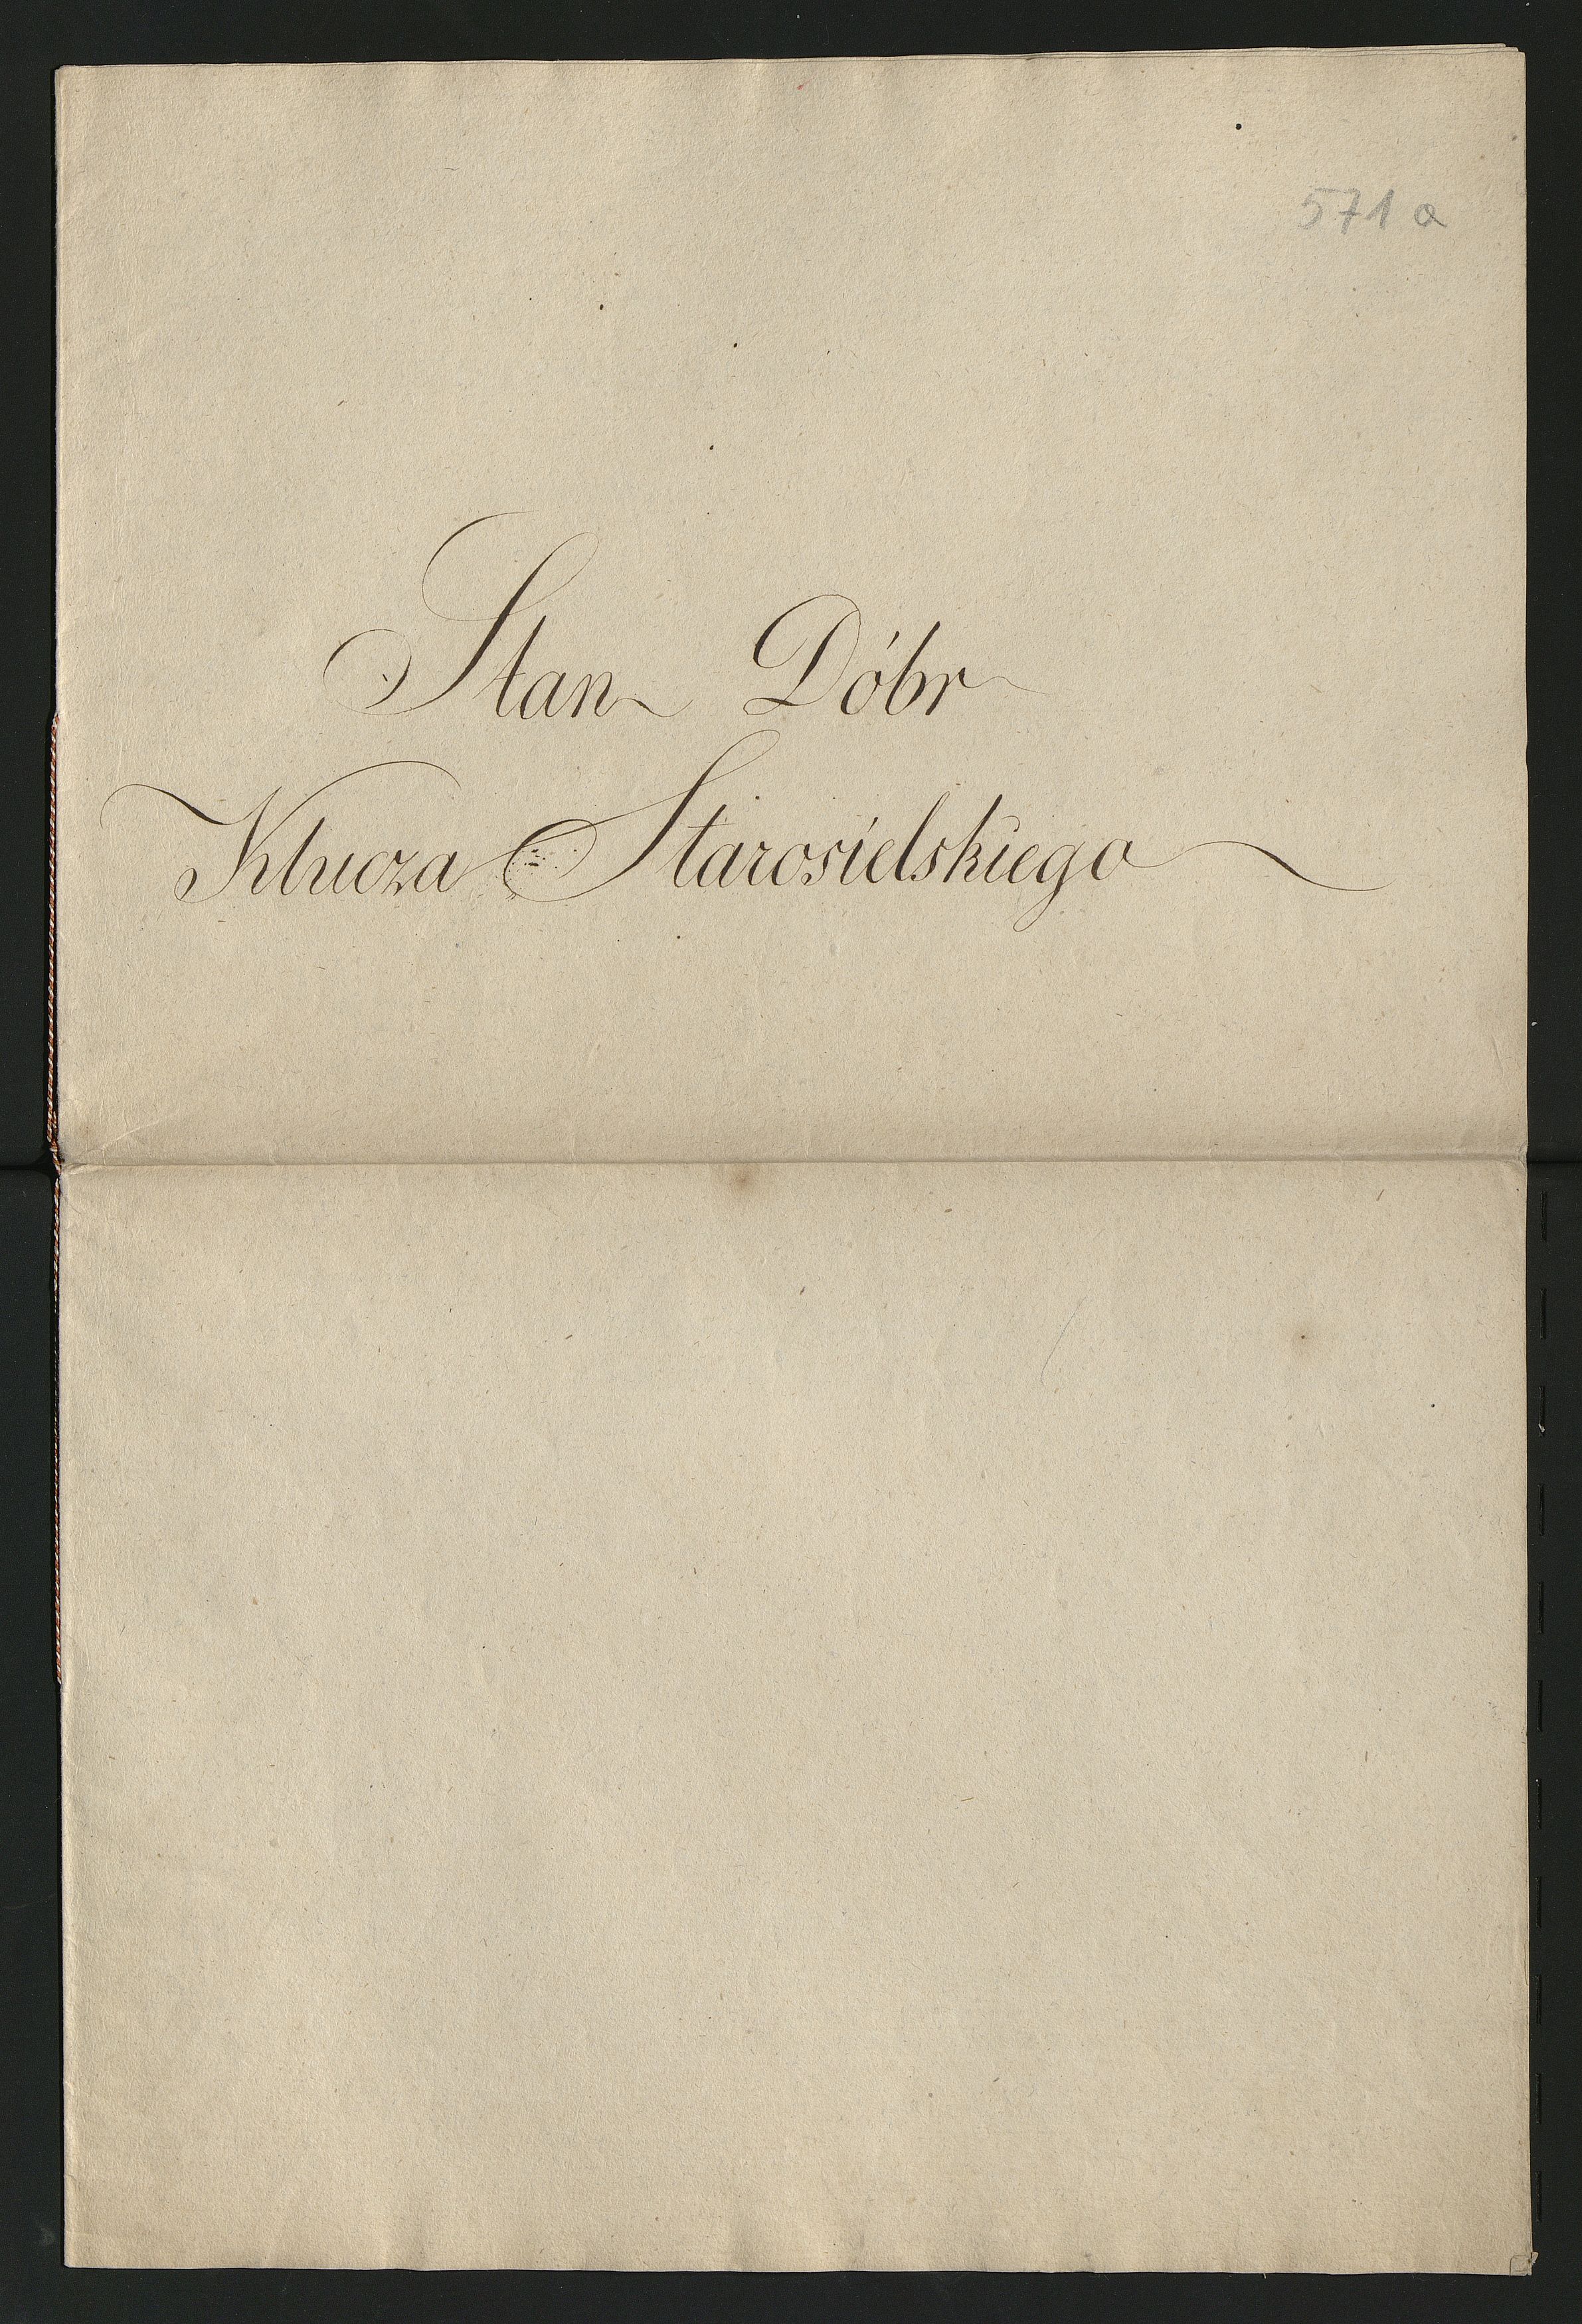 571 a
Stan Dóbr
Klucza Starosielskiego